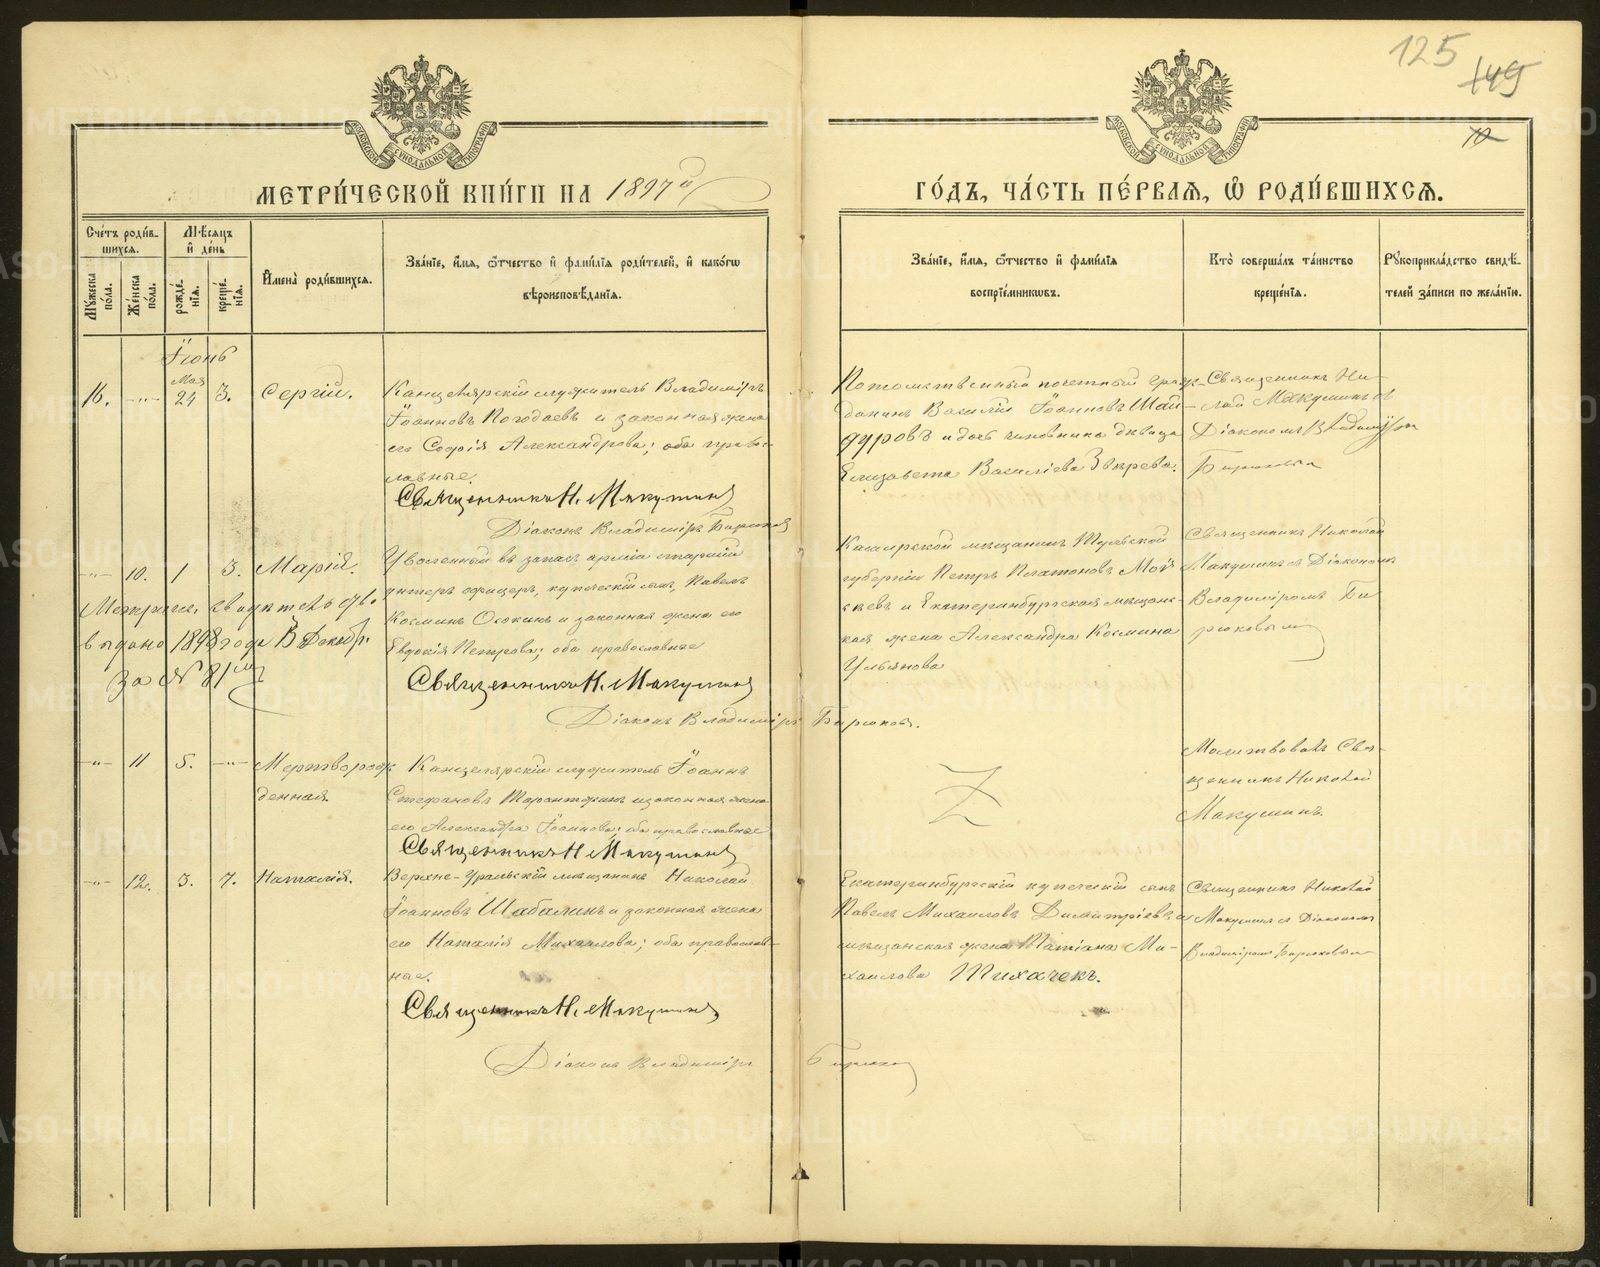 125
149
10
МОСКОВСКОЙ СѴНОДАЛЬНОЙ ТИПОГРАФІИ
МОСКОВСКОЙ СѴНОДАЛЬНОЙ ТИПОГРАФІИ
МЕТРИ́ЧЕСКОЙ КНИ́ГИ НА 1897й
ГО́ДЪ, ЧА́СТЬ ПЕ́РВАЯ, Ѡ҆ РОДИ́ВШИХСЯ.
Сче́тъ роди́в-
шихся.
Мꙋ́жеска по́ла.
Же́нска по́ла.
Мѣ́сяцъ
и҆ де́нь
рожде́нїя.
креще́нїя.
И҆мена̀ роди́вшихся.
Зва́нїе, и҆́мя, ѻ҆́тчество и҆ фами́лїя роди́телей, и҆ како́гѡ
вѣроисповѣ́данїя.
Зва́нїе, и҆́мя, ѻ҆́тчество и҆ фами́лїя
воспрїе́мниковъ.
Кто̀ соверша́лъ та́инство
креще́нїя.
Рꙋкоприкла́дство свидѣ́-
телей за́писи по жела́нїю.
Іюнь
16. -"- Мая 24 3. Сергій.
Канцелярскій служитель Владиміръ
Іоанновъ Погодаевъ и законная жена
его Софія Александрова; оба право-
славные.
Священникъ Н. Макушинъ
Діаконъ Владиміръ Бирюковъ
Потомственный почетный граж-
данинъ Василій Іоанновъ Шай-
дуровъ и дочь чиновника девица
Елизавета Василіева Звѣрева.
Священникъ Ни-
лай Макушинъ съ
Діакономъ Владиміром
Бирюковым
-"- 10. 1 3. Марія.
Уволенный въ запасъ арміи старшій
унтеръ офицеръ, купеческій сынъ, Павелъ
Космин Осокинъ и законная жена его
Евдокія Петрова; оба православные
Священникъ Н. Макушинъ
Діаконъ Владиміръ Бирюковъ.
Метрическ. свидетельство.
выдано 1898 года 13 Декабр.
за № 81
Каширской мѣщанинъ Тульской
губерніи Петръ Платоновъ
и Екатеринбургская мѣщанс-
кая жена Александра Космина
Ульянова
Священникъ Николай
Макушинъ съ Діакономъ
Владиміромъ Би
рюковым
-"- 11 5. -"- Мертворож
денная.
Канцелярскій служитель Іоаннъ
Стефановъ и законная жена
его Александра Іоаннова; оба православные
Священникъ Н Макушинъ
Z
Молитвовалъ Свя-
щенникъ Николай
Макушинъ.
-"- 12. 3. 7. Наталія.
Верхне-Уральскій мѣщанинъ Николай
Іоанновъ Шабалинъ и законная жена
его Наталія Михаилова; оба православ-
ные.
Священникъ Н. Макушинъ,
Діаконъ Владиміръ Бирюков
Екатеринбургскій купеческій сынъ
Павелъ Михаиловъ Димитріевъ и
мѣщанская жена Татіана Ми-
хаилова Тихачекъ.
Священникъ Николай
Макушинъ съ Діакономъ
Владиміромъ Бирюковым
METRIKI.GASO-URAL.RU